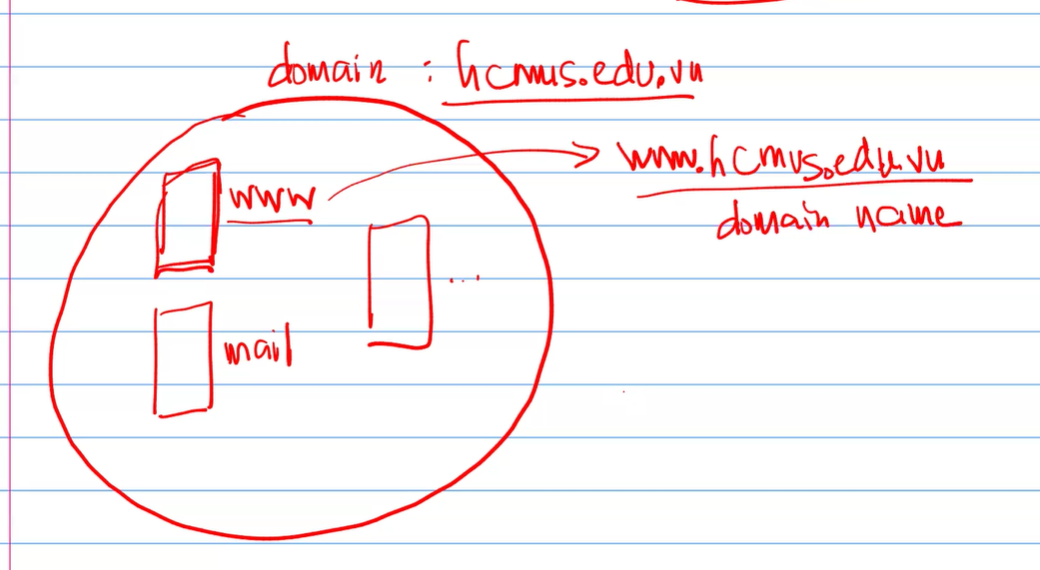 domain : hcmus.edu.vn
www
www.hcmus.edu.vn
domain name
...
mail